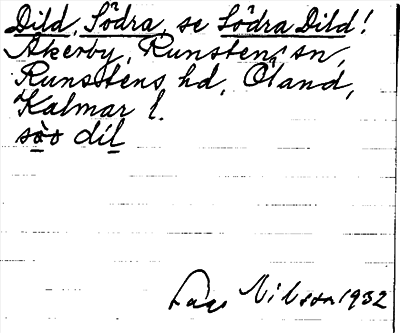 Dild, Södra, se Södra Dild!
Åkerby, Runstens sn,
Runstens hd, Öland,
Kalmar l.
sö̀o dil
Nilsson 1932